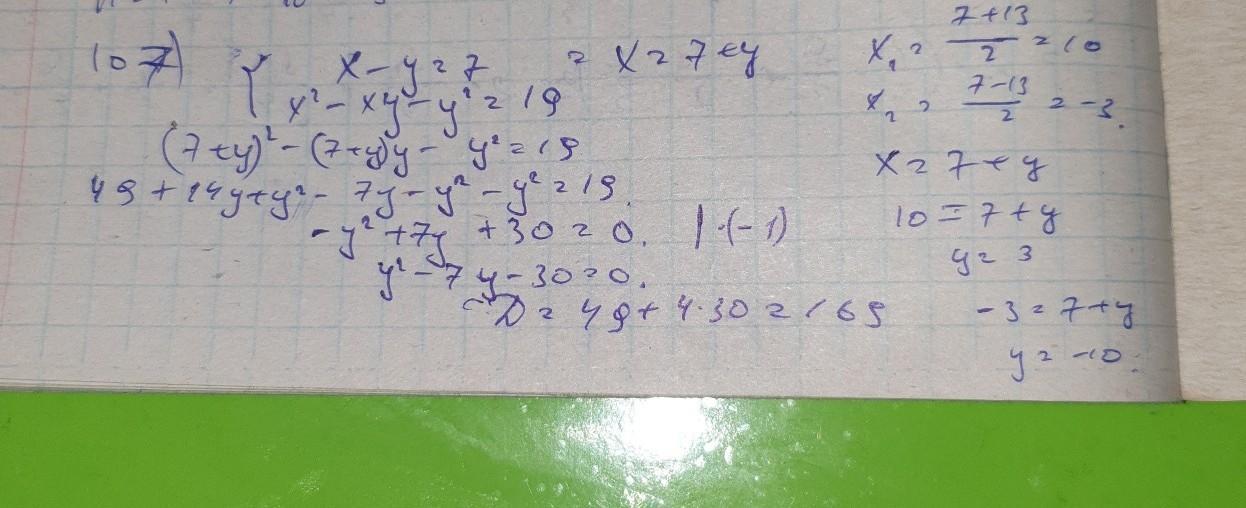 107)
x - y = 7 = x = 7 + y
x² - xy - y² = 19
(7+y)² - (7+y)y - y² = 19
49 + 14y + y² - 7y - y² - y² = 19.
- y² + 7y + 30 = 0. | ·(-1)
y² - 7y - 30 = 0.
D = 49 + 4·30 = 169
x₁ = (7+13)/2 = 10
x₂ = (7-13)/2 = -3.
x = 7 + y
10 = 7 + y
y = 3
-3 = 7 + y
y = -10.